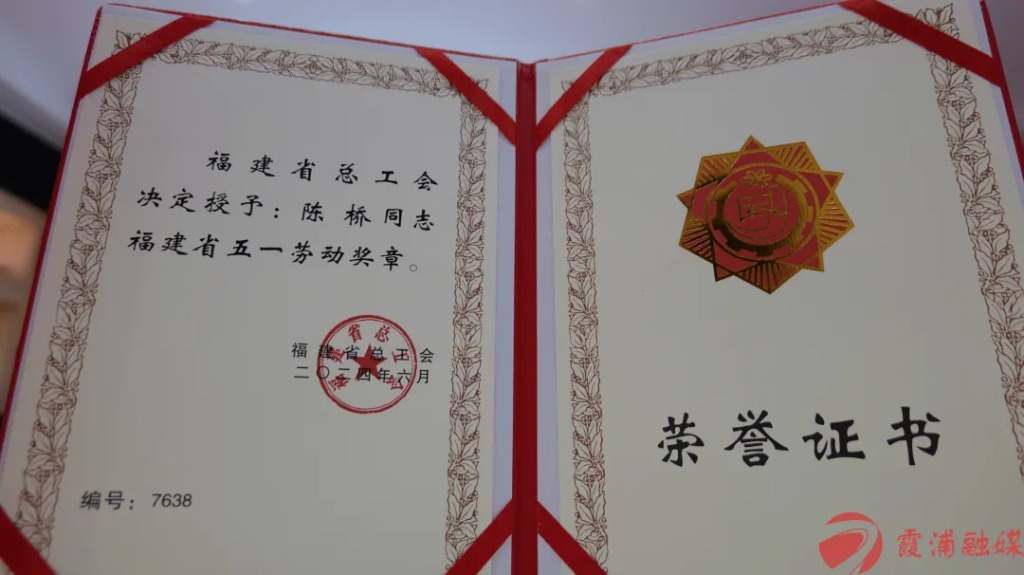 福建省总工会
决定授予：陈桥同志
福建省五一劳动奖章。
福建省总工会
福建省总工会
二〇二四年六月
编号：7638
荣誉证书
霞浦融媒